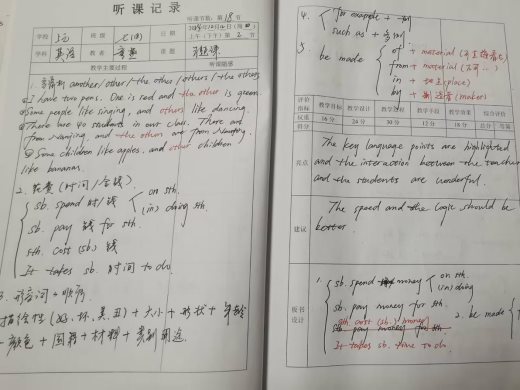 听课记录
听课节数: 第 18 节
学校 班级 七(8) 日期
学科 英语 教者 课题
上午(下午)第 2 节
教学主要过程 听课随感
another / other / the other / others / the others
I have two pens. One is red and the other is green.
Some people like singing, and others like dancing.
There are 40 students in our class. There are
from Nanjing, and the others are from
Some children like apples, and other children
like bananas.
2. 花费 (时间/金钱)
sb. spend 时/钱 on sth.
(in) doing sth.
sb. pay 钱 for sth.
sth. cost (sb.) 钱
It takes sb. 时间 to do
3. 形容词
(好、坏、美、丑) + 大小 + 形状 + 年龄
+ 颜色 + 国籍 + 材料 + 类别
4. for example +
such as +
5. be made of + material
from + material
in + 地点 (place)
by + 制造者 (maker)
评价指标 教学目标 教学设计 教学过程 教学手段 教学效果 综合评价
权重 16分 24分 30分 12分 18分 总分 等第
得分
亮点
The key language points are highlighted
and the interaction between the teacher
and the students are wonderful.
建议
The speed and the logic should be
better.
板书设计
1. sb. spend money on sth.
(in) doing
sb. pay money for sth.
sth cost (sb.) money
sb pay money for sth
It takes sb. time to do
2. be made